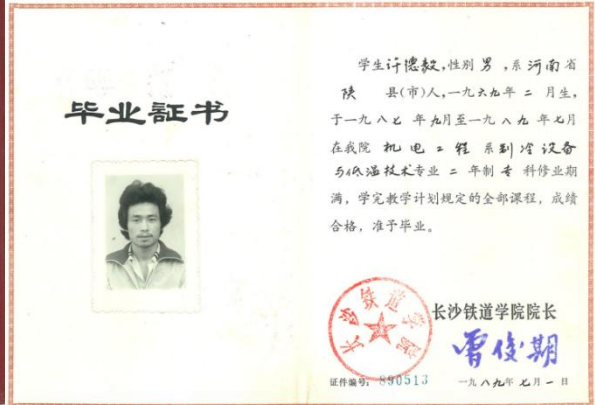 毕业証书
学生许德毅，性别男，系河南省
陕 县(市)人，一九六九年 二 月生，
于一九八七年九月至一九八九年七月
在我院 机电工程 系制冷设备
与低温技术专业 二 年制 专 科修业期
满，学完教学计划规定的全部课程，成绩
合格，准予毕业。
长沙铁道学院
长沙铁道学院院长
曹俊期
证件编号：890513
一九八九年七月一日